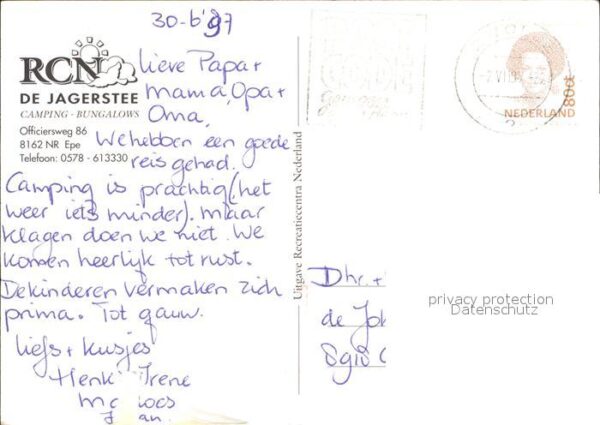 30-6'97
RCN
DE JAGERSTEE
CAMPING · BUNGALOWS
Officiersweg 86
8162 NR Epe
Telefoon: 0578 - 613330
lieve Papa +
Mama, Opa +
Oma,
We hebben een goede
reis gehad.
Camping is prachtig (het
weer iets minder). maar
klagen doen we niet. We
komen heerlijk tot rust.
De kinderen vermaken zich
prima. Tot gauw.
liefs + kusjes
Henk Irene
Uitgave Recreatiecentra Nederland
80c
NEDERLAND
Dhr. +
de
privacy protection
Datenschutz